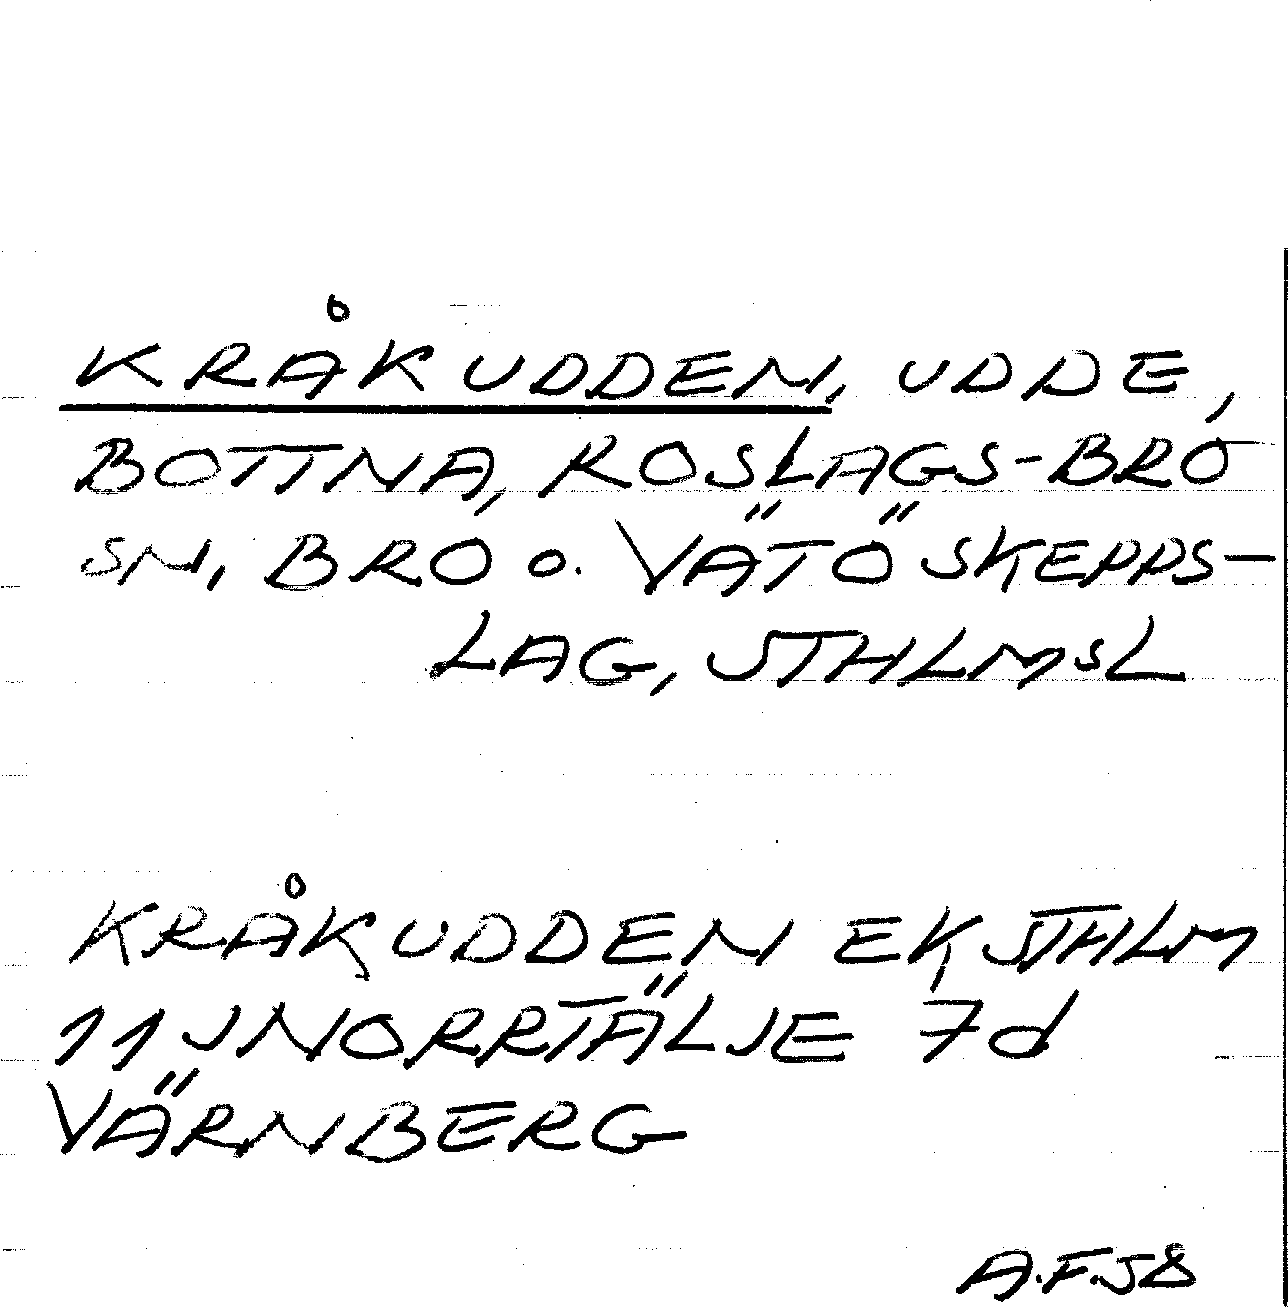 KRÅKUDDEN, UDDE,
BOTTNA, ROSLAGS-BRO
SN, BRO o. VÄTÖ SKEPPS-
LAG, STHLMSL
KRÅKUDDEN EK STHLM
11J NORRTÄLJE 7d
VÄRNBERG
A.F.58